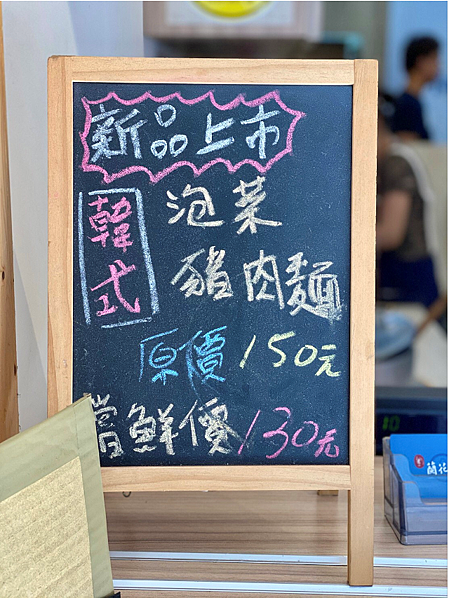 新品上市
韓式
泡菜
豬肉麵
原價150元
嘗鮮價130元
蘭花